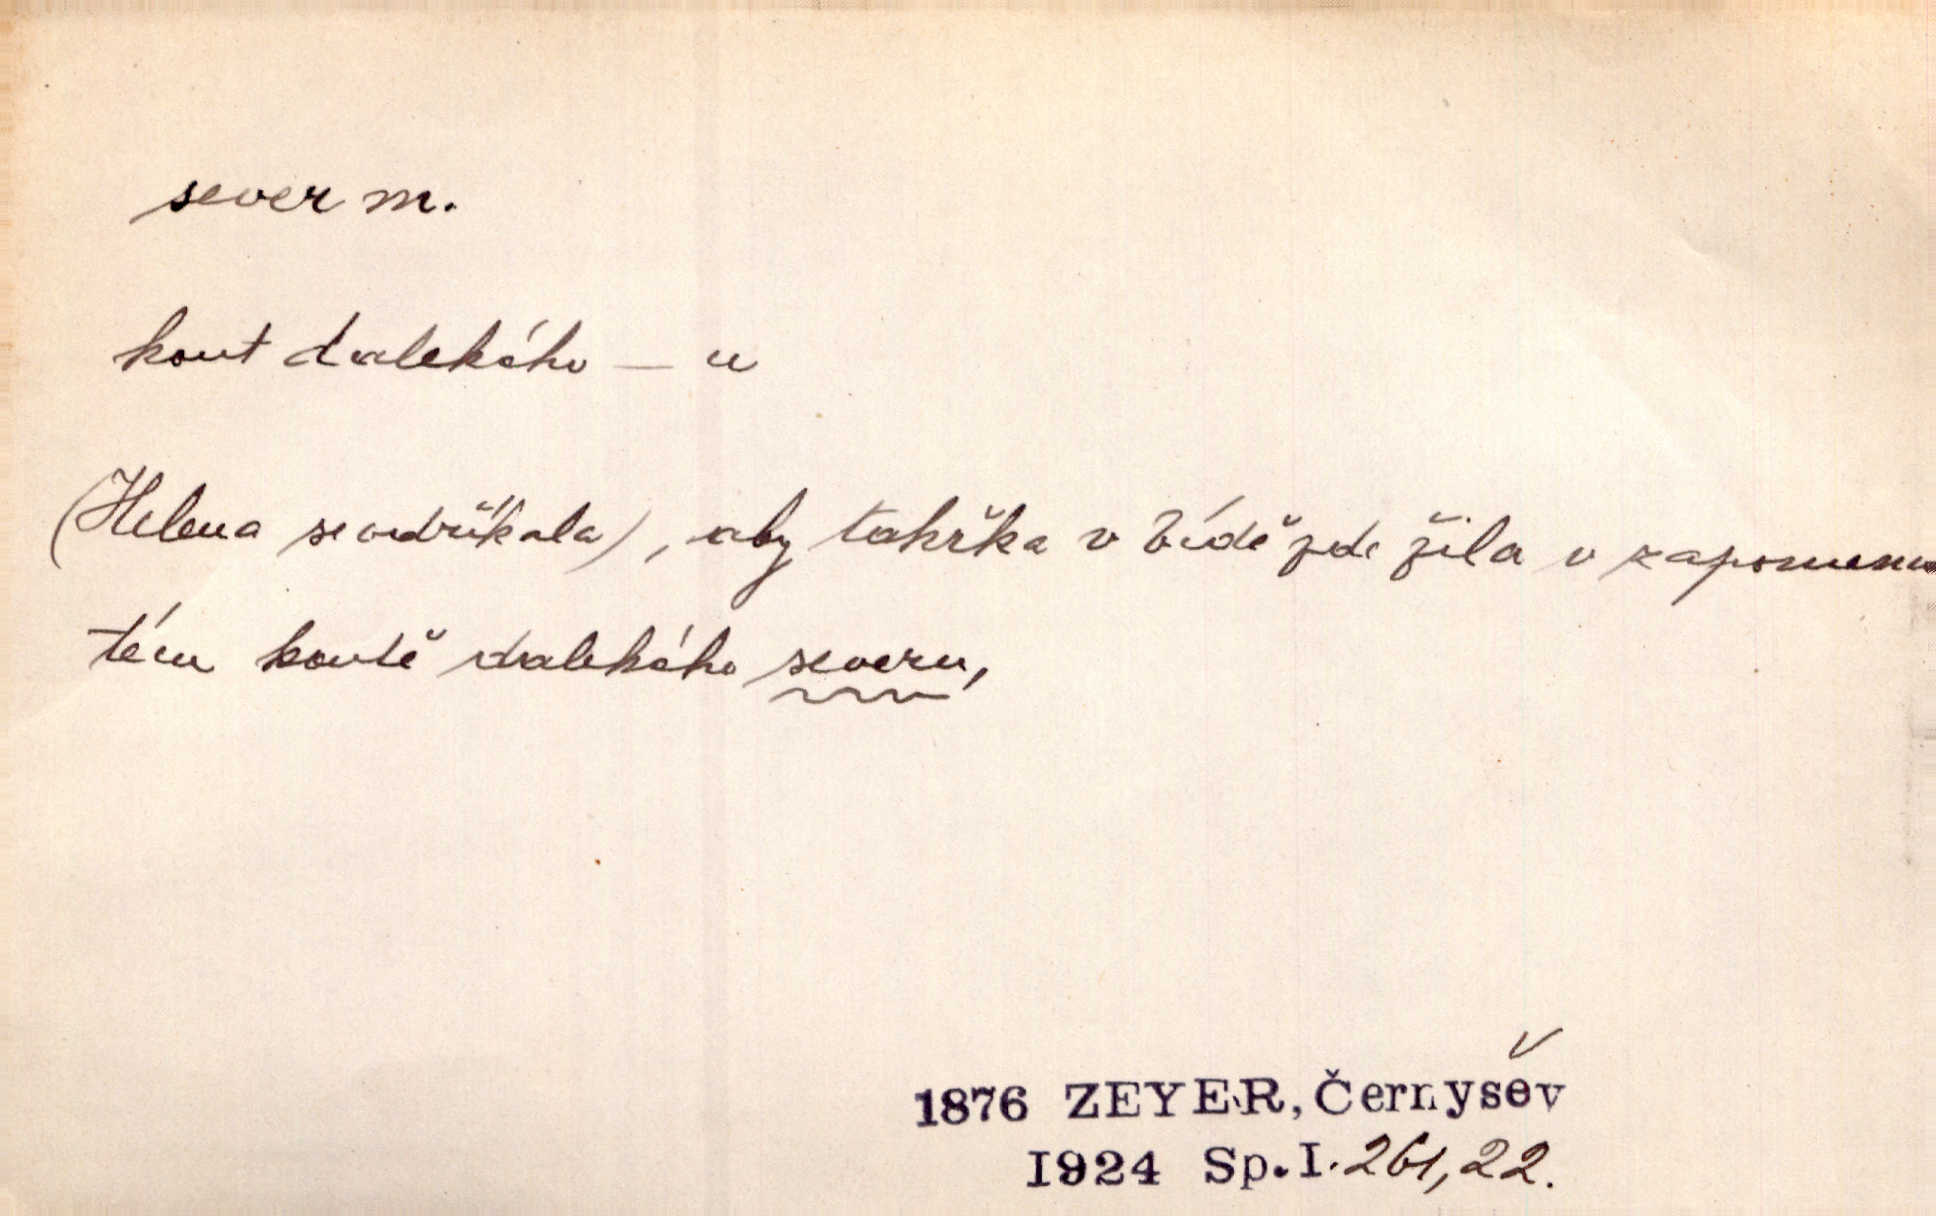 sever m.
kout dalekého – u
(Helena se odříkala), aby takřka v bídě zde žila v zapomenu
tém koutě dalekého severu,
1876 ZEYER, Černyšev
1924 Sp. I. 261, 22.